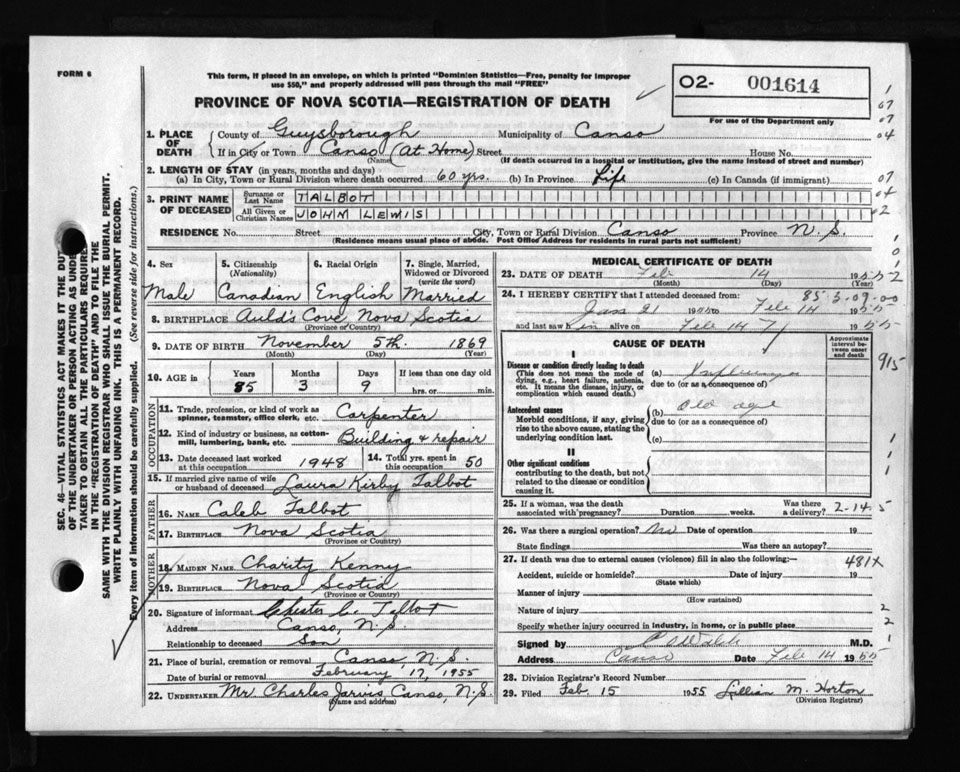 FORM 6
This form, if placed in an envelope, on which is printed "Dominion Statistics—Free, penalty for improper
use $50," and properly addressed will pass through the mail "FREE"
PROVINCE OF NOVA SCOTIA—REGISTRATION OF DEATH
O2- 001614
For use of the Department only
1. PLACE OF DEATH
County of Guysborough Municipality of Canso
If in City or Town Canso (At Home) Street House No.
(Name) (If death occurred in a hospital or institution, give the name instead of street and number)
2. LENGTH OF STAY (in years, months and days)
(a) In City, Town or Rural Division where death occurred 60 yrs. (b) In Province Life (c) In Canada (if immigrant)
3. PRINT NAME OF DECEASED
Surname or Last Name TALBOT
All Given or Christian Names JOHM LEWIS
RESIDENCE No. Street City, Town or Rural Division Canso Province N.S.
(Residence means usual place of abode. Post Office Address for residents in rural parts not sufficient)
4. Sex
Male
5. Citizenship
(Nationality)
Canadian
6. Racial Origin
English
7. Single, Married, Widowed or Divorced
(write the word)
Married
8. BIRTHPLACE Auld's Cove, Nova Scotia
(Province or Country)
9. DATE OF BIRTH November 5th. 1869
(Month) (Day) (Year)
10. AGE in Years Months Days If less than one day old
85 3 9 hrs. or min.
OCCUPATION
11. Trade, profession, or kind of work as spinner, teamster, office clerk, etc. Carpenter
12. Kind of industry or business, as cotton-mill, lumbering, bank, etc. Building & repair
13. Date deceased last worked at this occupation 1948
14. Total yrs. spent in this occupation 50
15. If married give name of wife or husband of deceased Laura Kirby Talbot
FATHER
16. NAME Caleb Talbot
17. BIRTHPLACE Nova Scotia
(Province or Country)
MOTHER
18. MAIDEN NAME Charity Kenny
19. BIRTHPLACE Nova Scotia
(Province or Country)
20. Signature of informant Chester C. Talbot
Address Canso, N.S.
Relationship to deceased Son
21. Place of burial, cremation or removal Canso, N.S.
Date of burial or removal February 17, 1955
22. UNDERTAKER Mr. Charles Jarvis, Canso, N.S.
(Name and address)
MEDICAL CERTIFICATE OF DEATH
23. DATE OF DEATH Feb 14 1955
(Month) (Day)
24. I HEREBY CERTIFY that I attended deceased from:
85 3-09-00
Jan 21 to Feb 14 1955
and last saw him alive on Feb 14 1955
CAUSE OF DEATH
Approximate interval between onset and death
I
Disease or condition directly leading to death
(This does not mean the mode of dying, e.g., heart failure, asthenia, etc. It means the disease, injury, or complication which caused death.)
(a) Influenza
due to (or as a consequence of)
Antecedent causes
Morbid conditions, if any, giving rise to the above cause, stating the underlying condition last.
(b) Old age
due to (or as consequence of)
(c)
II
Other significant conditions
contributing to the death, but not related to the disease or condition causing it.
25. If a woman, was the death associated with pregnancy? Duration weeks. Was there a delivery?
2-14-5
26. Was there a surgical operation? No Date of operation 19
State findings Was there an autopsy?
27. If death was due to external causes (violence) fill in also the following:—
481X
Accident, suicide or homicide? Date of injury 19
(State which)
Manner of injury
(How sustained)
Nature of injury
Specify whether injury occurred in industry, in home, or in public place
Signed by Walsh M.D.
Address Canso Date Feb 14 1955
28. Division Registrar's Record Number
29. Filed Feb. 15 1955 Lillian M. Horton
(Division Registrar)
SEC. 46—VITAL STATISTICS ACT MAKES IT THE DUTY
OF THE UNDERTAKER OR PERSON ACTING AS UNDE
TAKER TO OBTAIN ALL THE PARTICULARS REQUIRE
IN THE "REGISTRATION OF DEATH" AND TO FILE THE
SAME WITH THE DIVISION REGISTRAR WHO SHALL ISSUE THE BURIAL PERMIT.
WRITE PLAINLY WITH UNFADING INK. THIS IS A PERMANENT RECORD.
Every item of information should be carefully supplied. (See reverse side for instructions.)
1
07
07
04
07
04
02
1
0
1
2
915
1
1
1
2
2
1